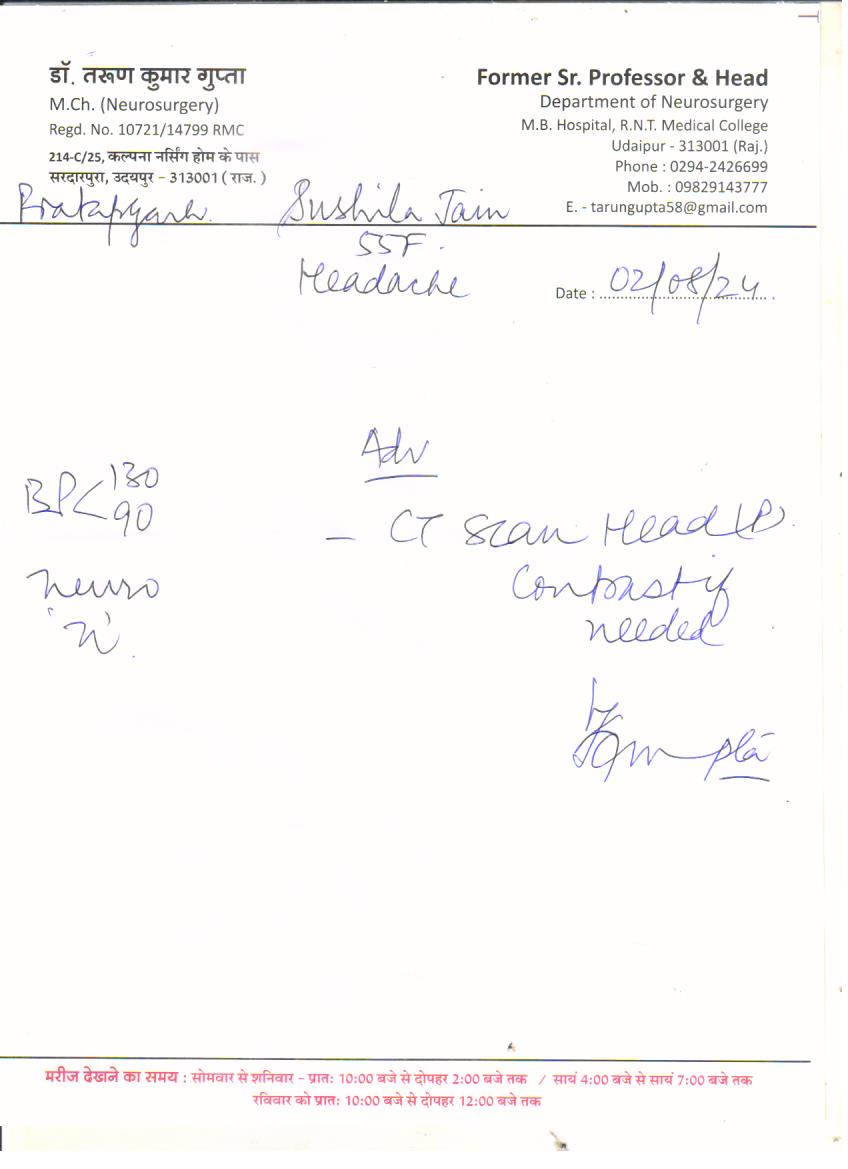 डॉ. तरूण कुमार गुप्ता
M.Ch. (Neurosurgery)
Regd. No. 10721/14799 RMC
214-C/25, कल्पना नर्सिंग होम के पास
सरदारपुरा, उदयपुर – 313001 ( राज. )
Former Sr. Professor & Head
Department of Neurosurgery
M.B. Hospital, R.N.T. Medical College
Udaipur - 313001 (Raj.)
Phone : 0294-2426699
Mob. : 09829143777
E. - tarungupta58@gmail.com
Pratapgarh. Sushila Jain
55F.
Headache
Date : 02/08/24
Adv
BP< 130
90
– CT Scan Head (P)
Contrast if
needed
Neuro
'N'
मरीज देखने का समय : सोमवार से शनिवार – प्रातः 10:00 बजे से दोपहर 2:00 बजे तक / सायं 4:00 बजे से सायं 7:00 बजे तक
रविवार को प्रातः 10:00 बजे से दोपहर 12:00 बजे तक